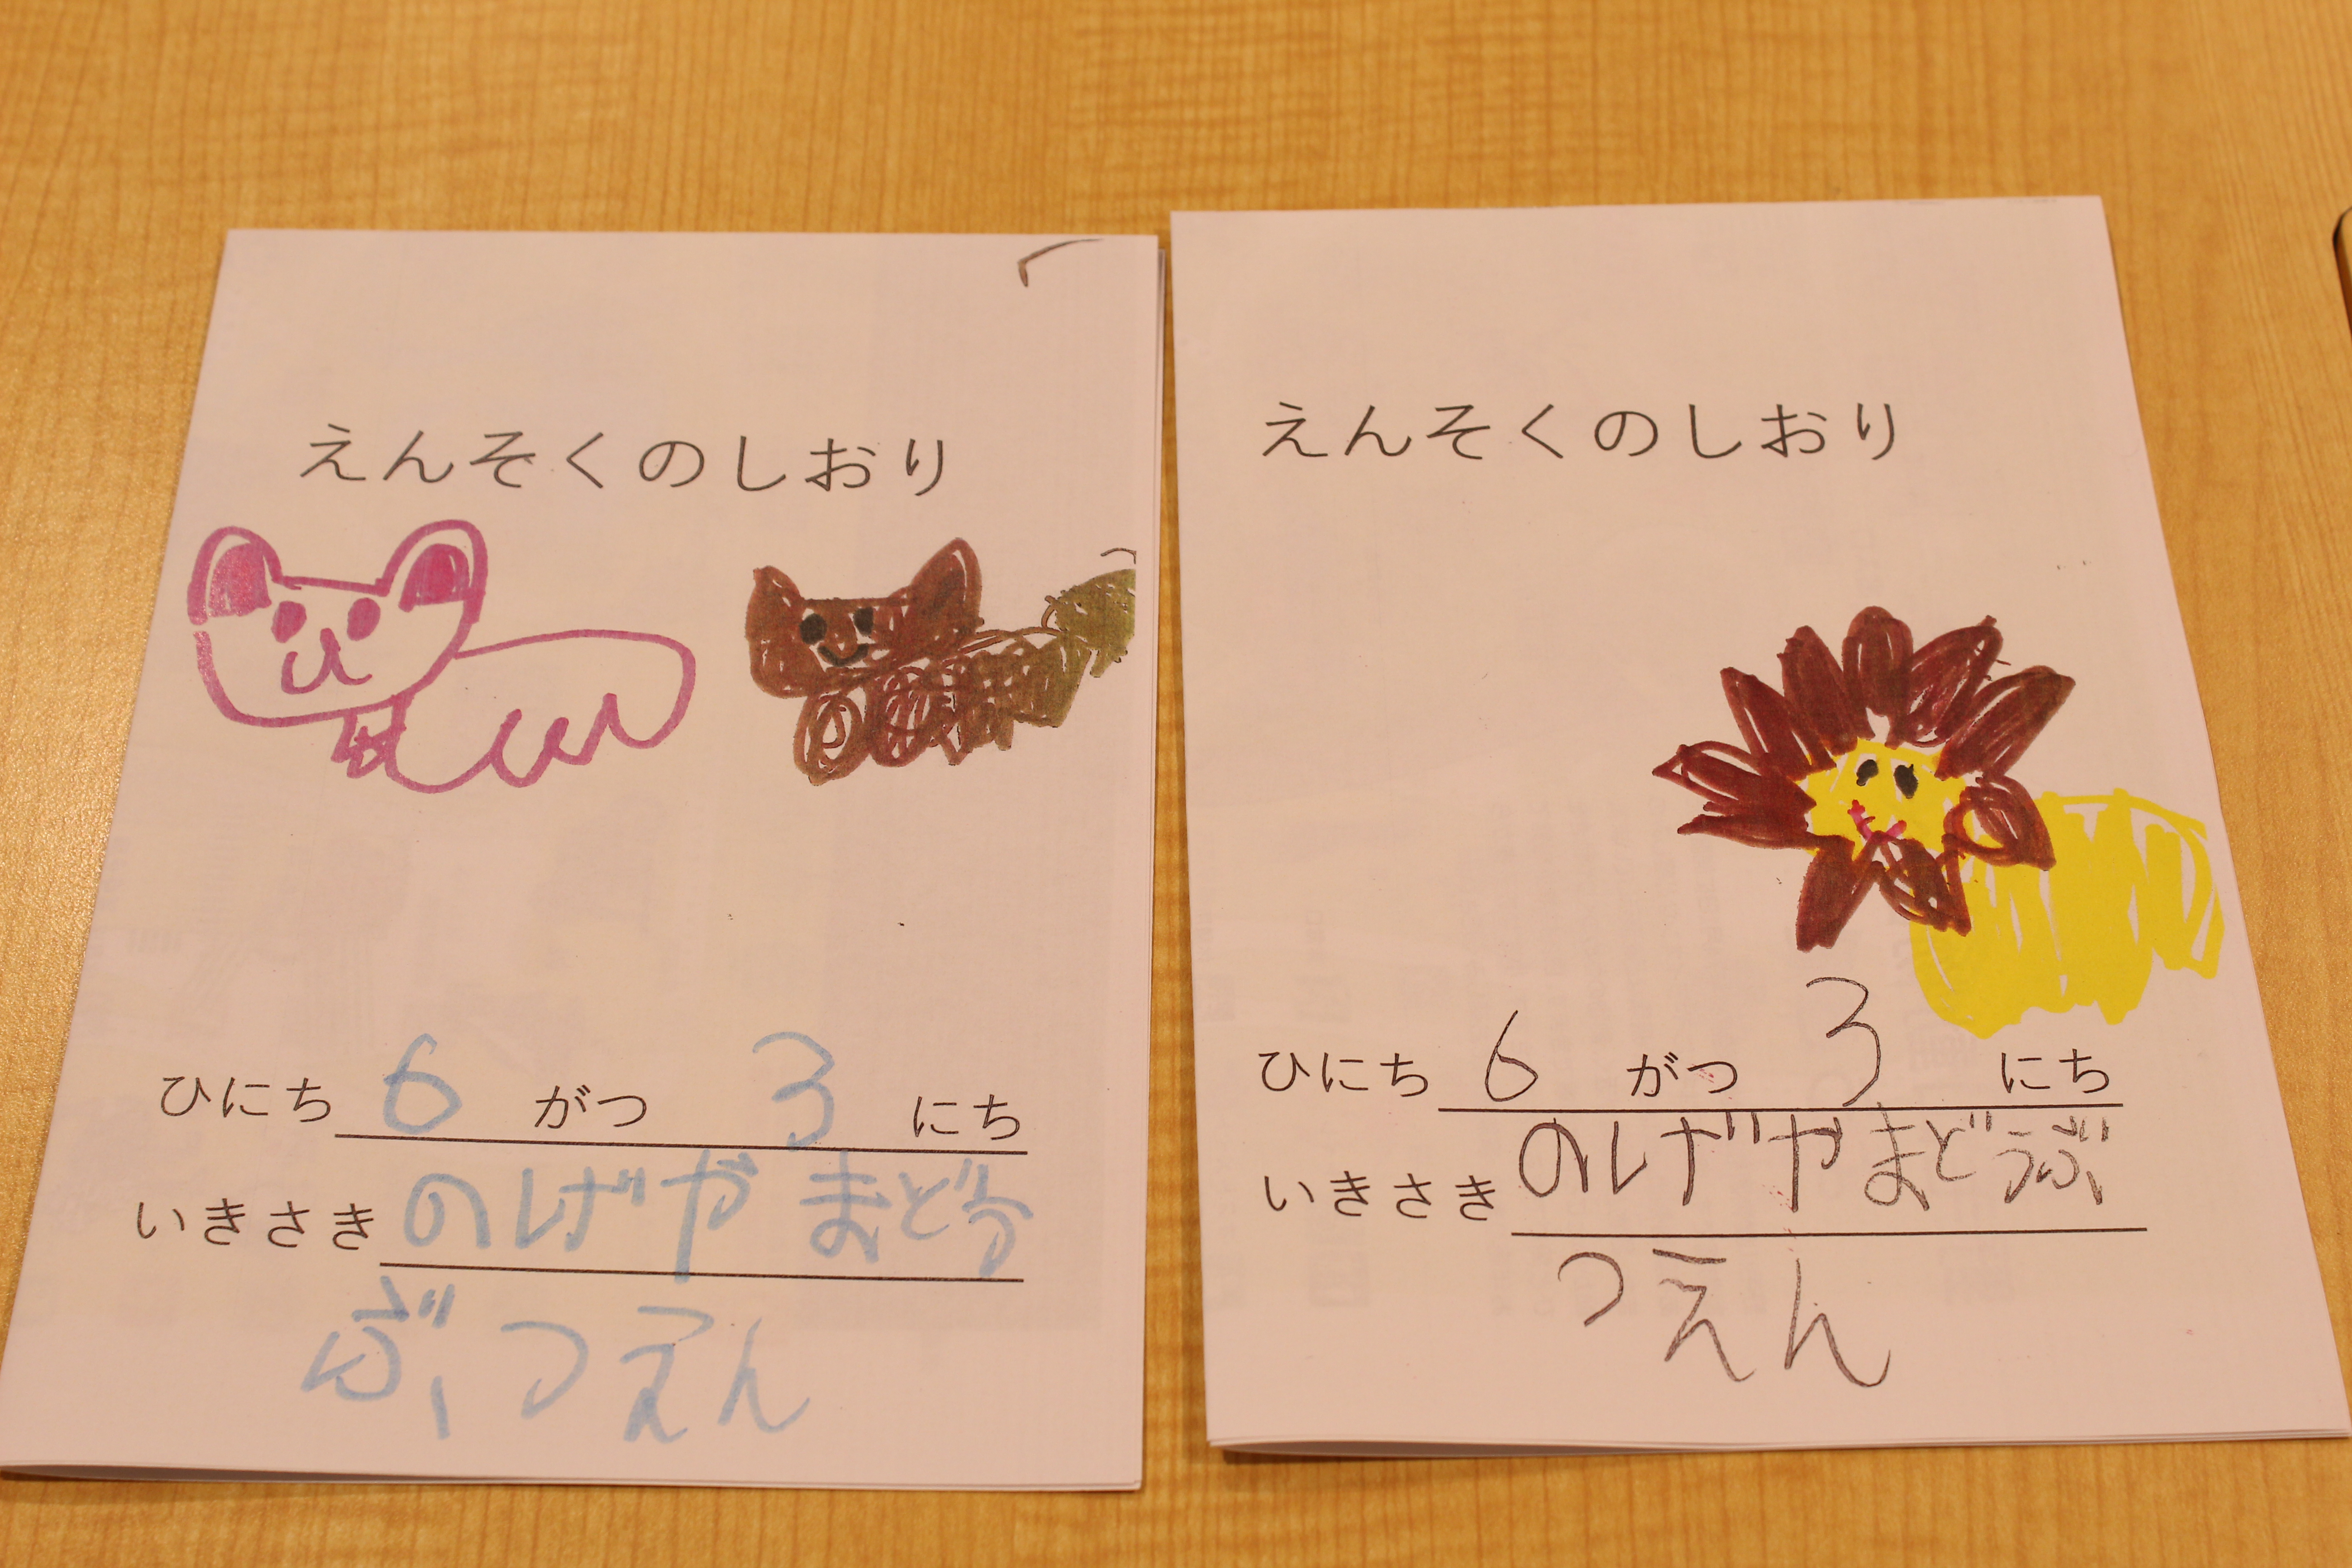 えんそくのしおり
ひにち 6 がつ 3 にち
いきさき のげやまどう
ぶつえん
えんそくのしおり
ひにち 6 がつ 3 にち
いきさき のげやまどうぶ
つえん